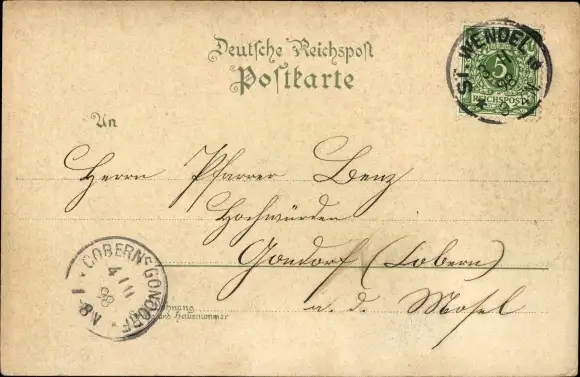 Deutsche Reichspost
Postkarte
ST. WENDEL
5
REICHSPOST
An
Herrn Pfarrer Benz
Hochwürden
Gondorf (Cobern)
a. d. Mosel
COBERN-GONDORF
4/11
98
8-9 N
und Hausnummer